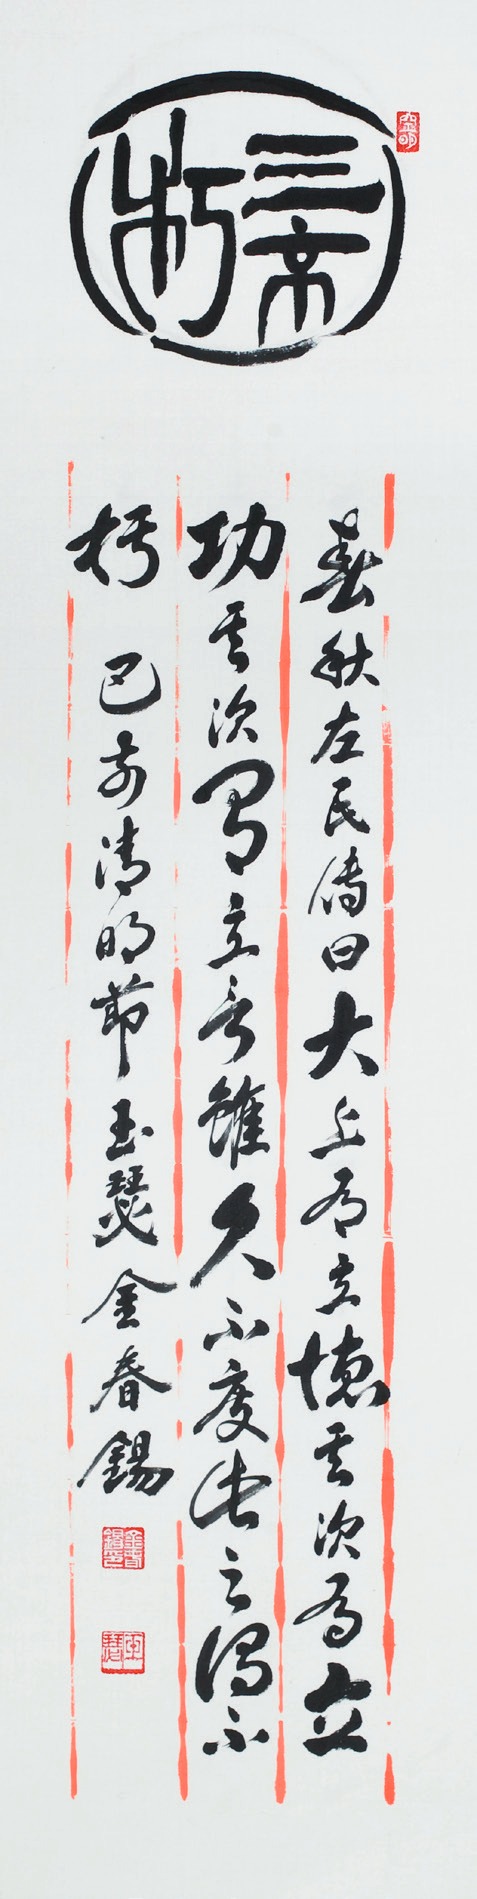 三不朽
春秋左氏傳曰大上有立德其次有立
功其次有立言雖久不廢此之謂不
朽 己亥清明節 玉瑟 金春錫